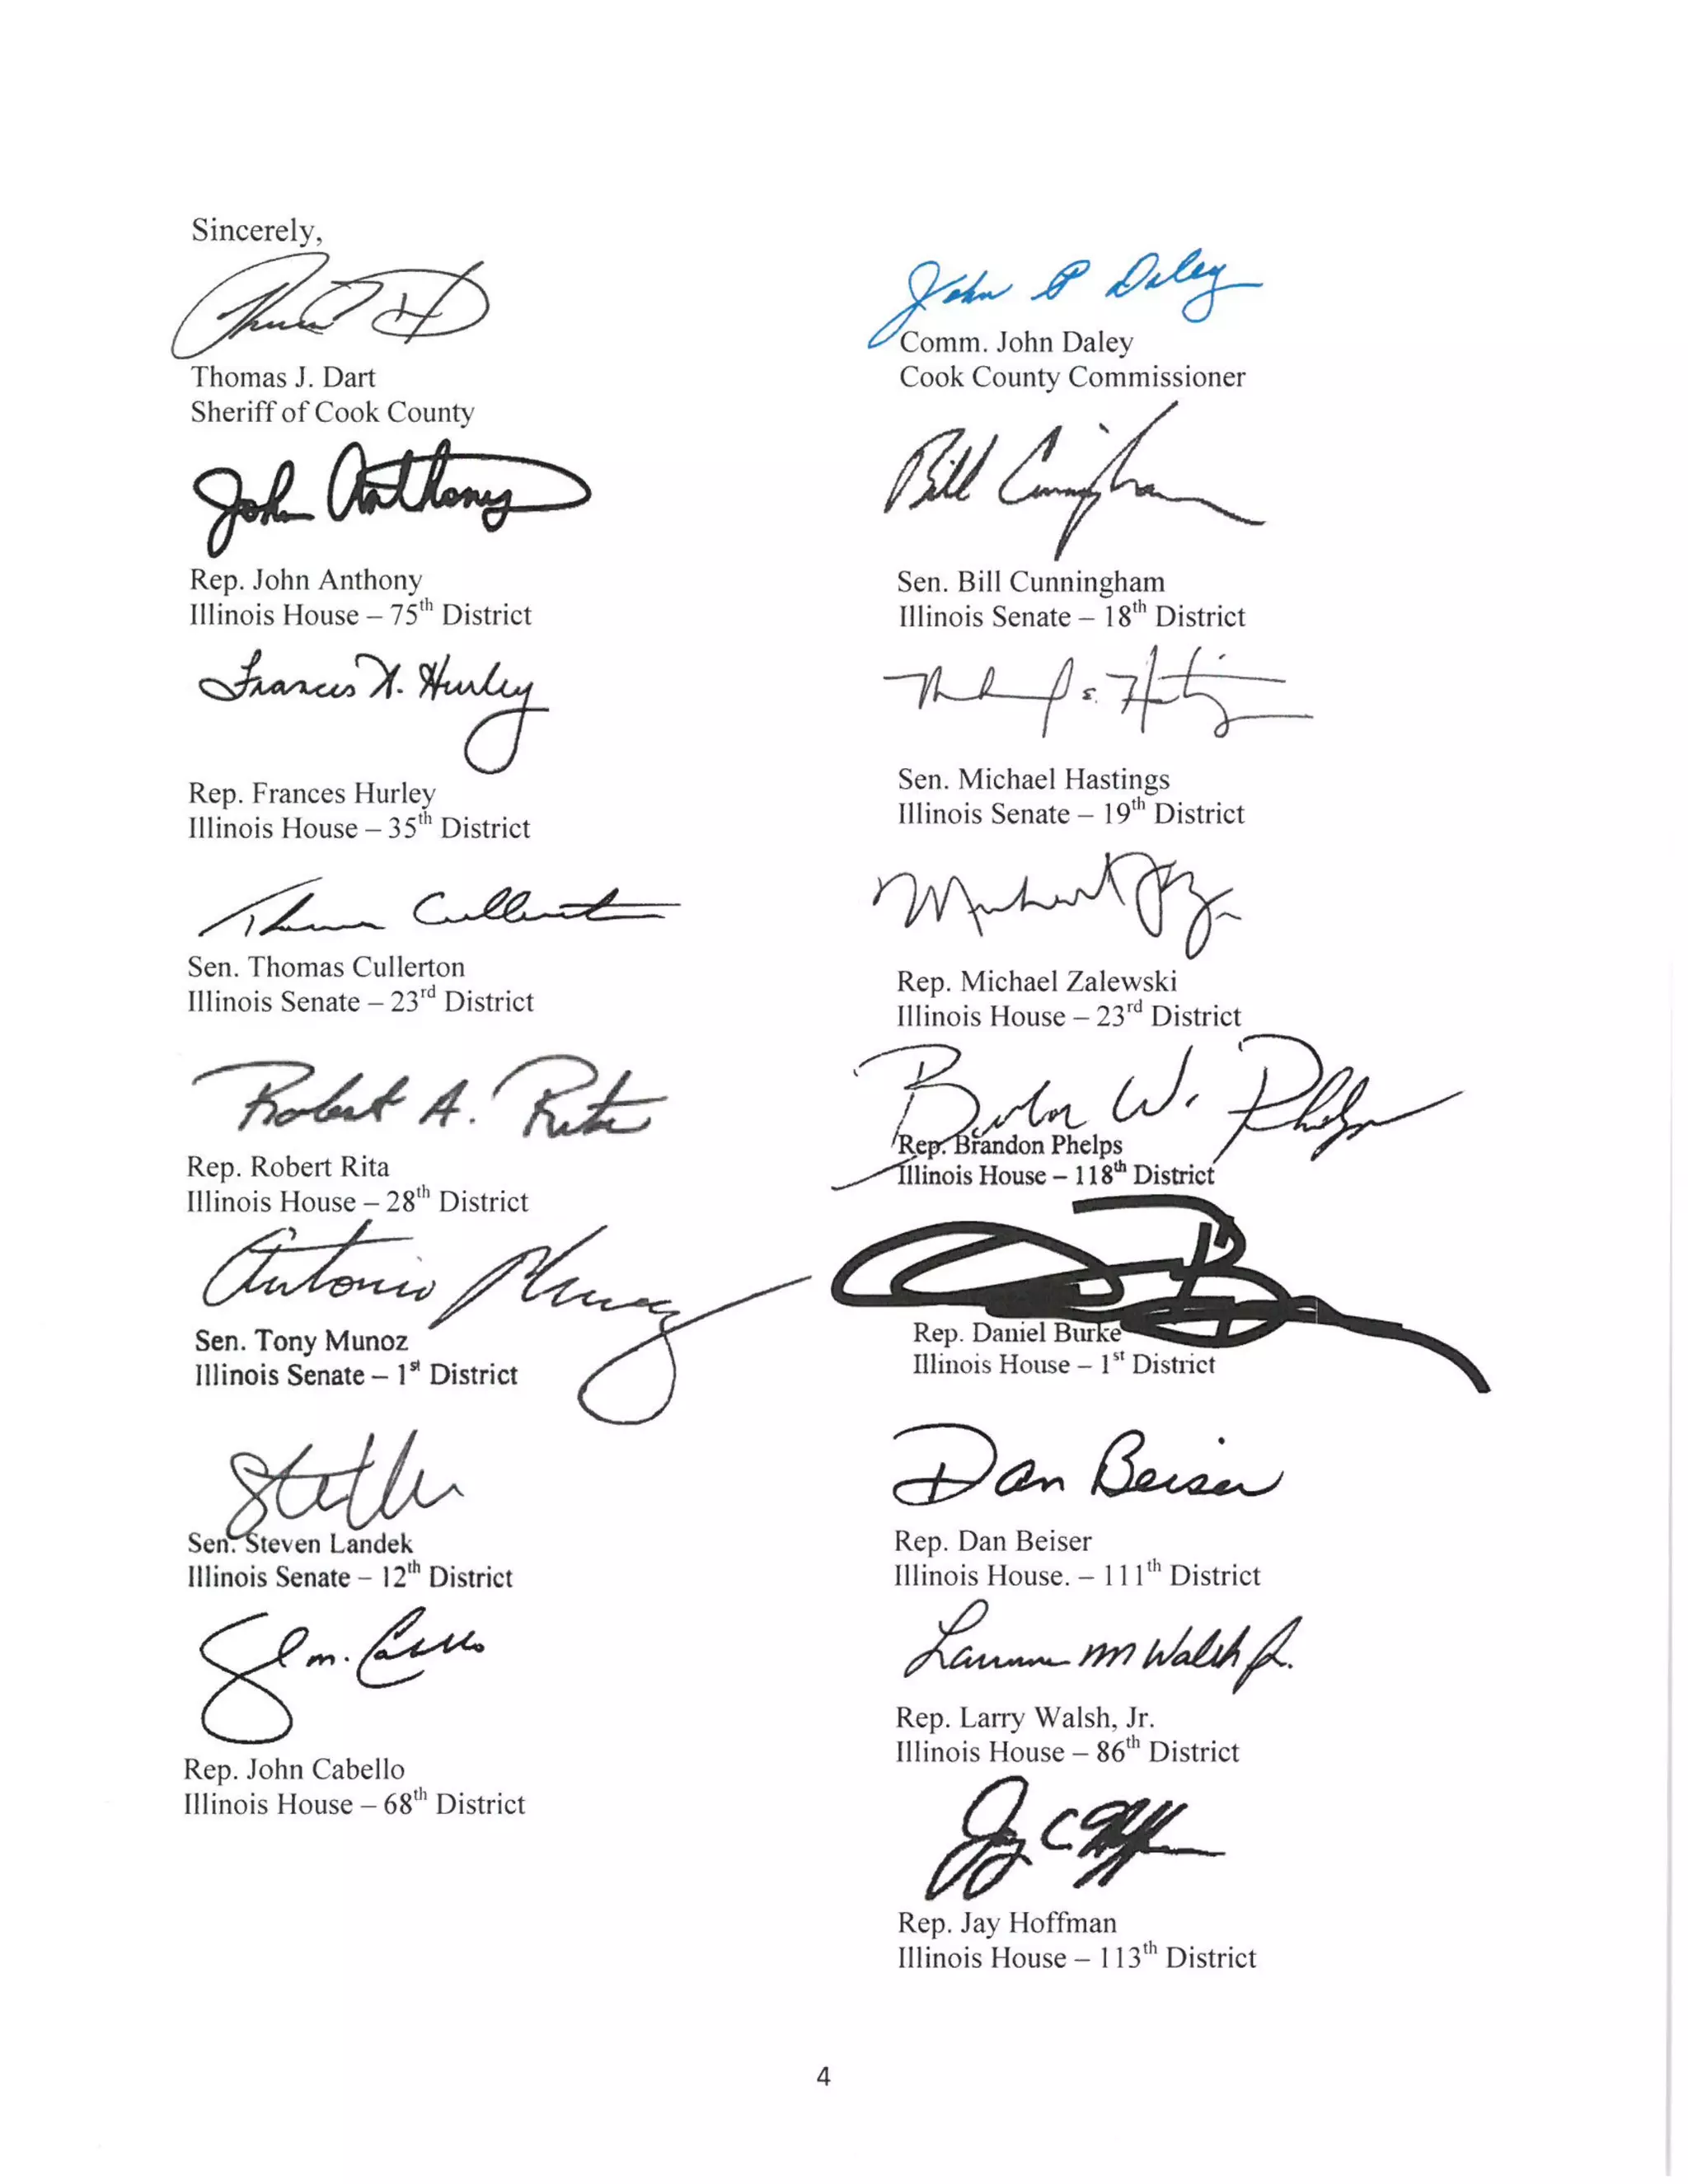 Sincerely,
Thomas J. Dart
Sheriff of Cook County
John Anthony
Rep. John Anthony
Illinois House – 75th District
Frances N. Hurley
Rep. Frances Hurley
Illinois House – 35th District
Thomas Cullerton
Sen. Thomas Cullerton
Illinois Senate – 23rd District
Robert A. Rita
Rep. Robert Rita
Illinois House – 28th District
Antonio Munoz
Sen. Tony Munoz
Illinois Senate – 1st District
Sen. Steven Landek
Illinois Senate – 12th District
Rep. John Cabello
Illinois House – 68th District
John P Daley
Comm. John Daley
Cook County Commissioner
Bill Cunningham
Sen. Bill Cunningham
Illinois Senate – 18th District
Sen. Michael Hastings
Illinois Senate – 19th District
Rep. Michael Zalewski
Illinois House – 23rd District
Brandon W. Phelps
Rep. Brandon Phelps
Illinois House – 118th District
Rep. Daniel Burke
Illinois House – 1st District
Dan Beiser
Rep. Dan Beiser
Illinois House. – 111th District
Lawrence M Walsh Jr.
Rep. Larry Walsh, Jr.
Illinois House – 86th District
Rep. Jay Hoffman
Illinois House – 113th District
4